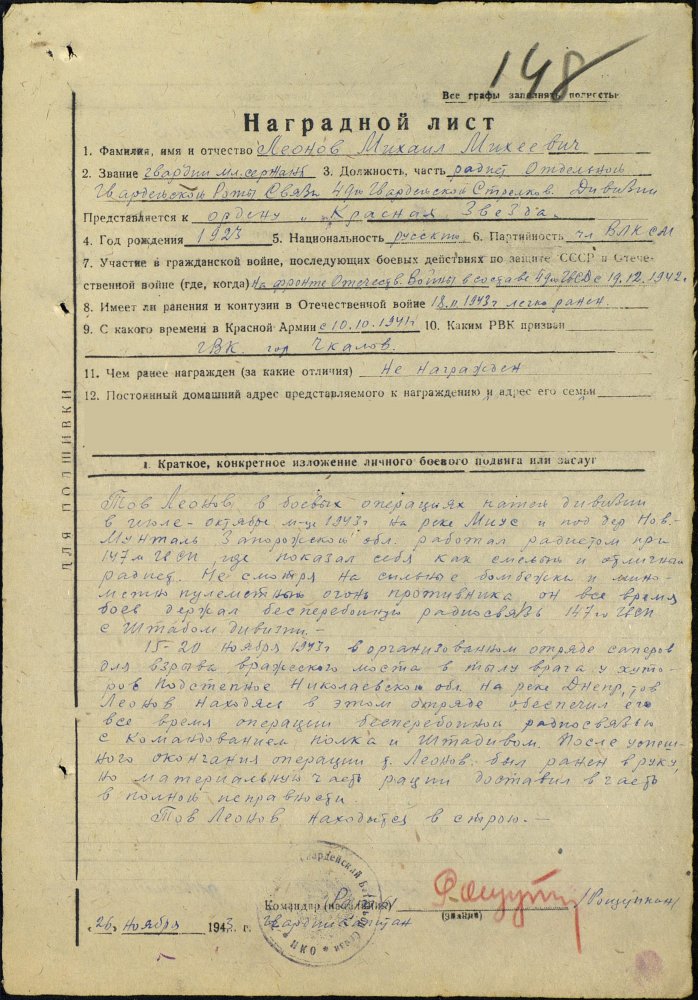 148
Все графы заполнять полностью
Наградной лист
1. Фамилия, имя и отчество Леонов Михаил Михеевич
2. Звание гвардии мл. сержант 3. Должность, часть радист Отдельной
Гвардейской Роты Связи 49й Гвардейской Стрелков. Дивизии
Представляется к ордену "Красная Звезда"
4. Год рождения 1923 5. Национальность русский 6. Партийность чл ВЛКСМ
7. Участие в гражданской войне, последующих боевых действиях по защите СССР и Отече-
ственной войне (где, когда) на фронте Отечеств. Войны в составе 49й ГвСД с 19.12.1942г
8. Имеет ли ранения и контузии в Отечественной войне 18.11.1943г легко ранен.
9. С какого времени в Красной Армии с 10.10.1941г 10. Каким РВК призван
ГВК. гор Чкалов.
11. Чем ранее награжден (за какие отличия) Не награжден
12. Постоянный домашний адрес представляемого к награждению и адрес его семьи
I. Краткое, конкретное изложение личного боевого подвига или заслуг
ДЛЯ ПОДШИВКИ
Тов Леонов в боевых операциях нашей дивизии
в июле-октябре м-це 1943г на реке Миус и под дер Нов.-
Мунталь Запорожской обл. работал радистом при
147м ГвСП, где показал себя как смелый и отличный
радист. Не смотря на сильные бомбежки и мино-
метно пулеметный огонь противника он все время
боев держал бесперебойную радиосвязь 147го ГвСП
с Штабом дивизии.-
15-20 ноября 1943г в организованном отряде саперов
для взрыва вражеского моста в тылу врага у хуто-
ров Подстепное Николаевской обл. на реке Днепр, тов
Леонов находясь в этом отряде обеспечил его
все время операции бесперебойной радиосвязью
с командованием полка и Штадивом. После успеш-
ного окончания операции т. Леонов был ранен в руку,
но материальную часть рации доставил в часть
в полной исправности.
Тов Леонов находится в строю.-
Командир (начальник) Роты /Рощупкин/
Гвардии капитан (звание)
"26" ноября 1943 г.